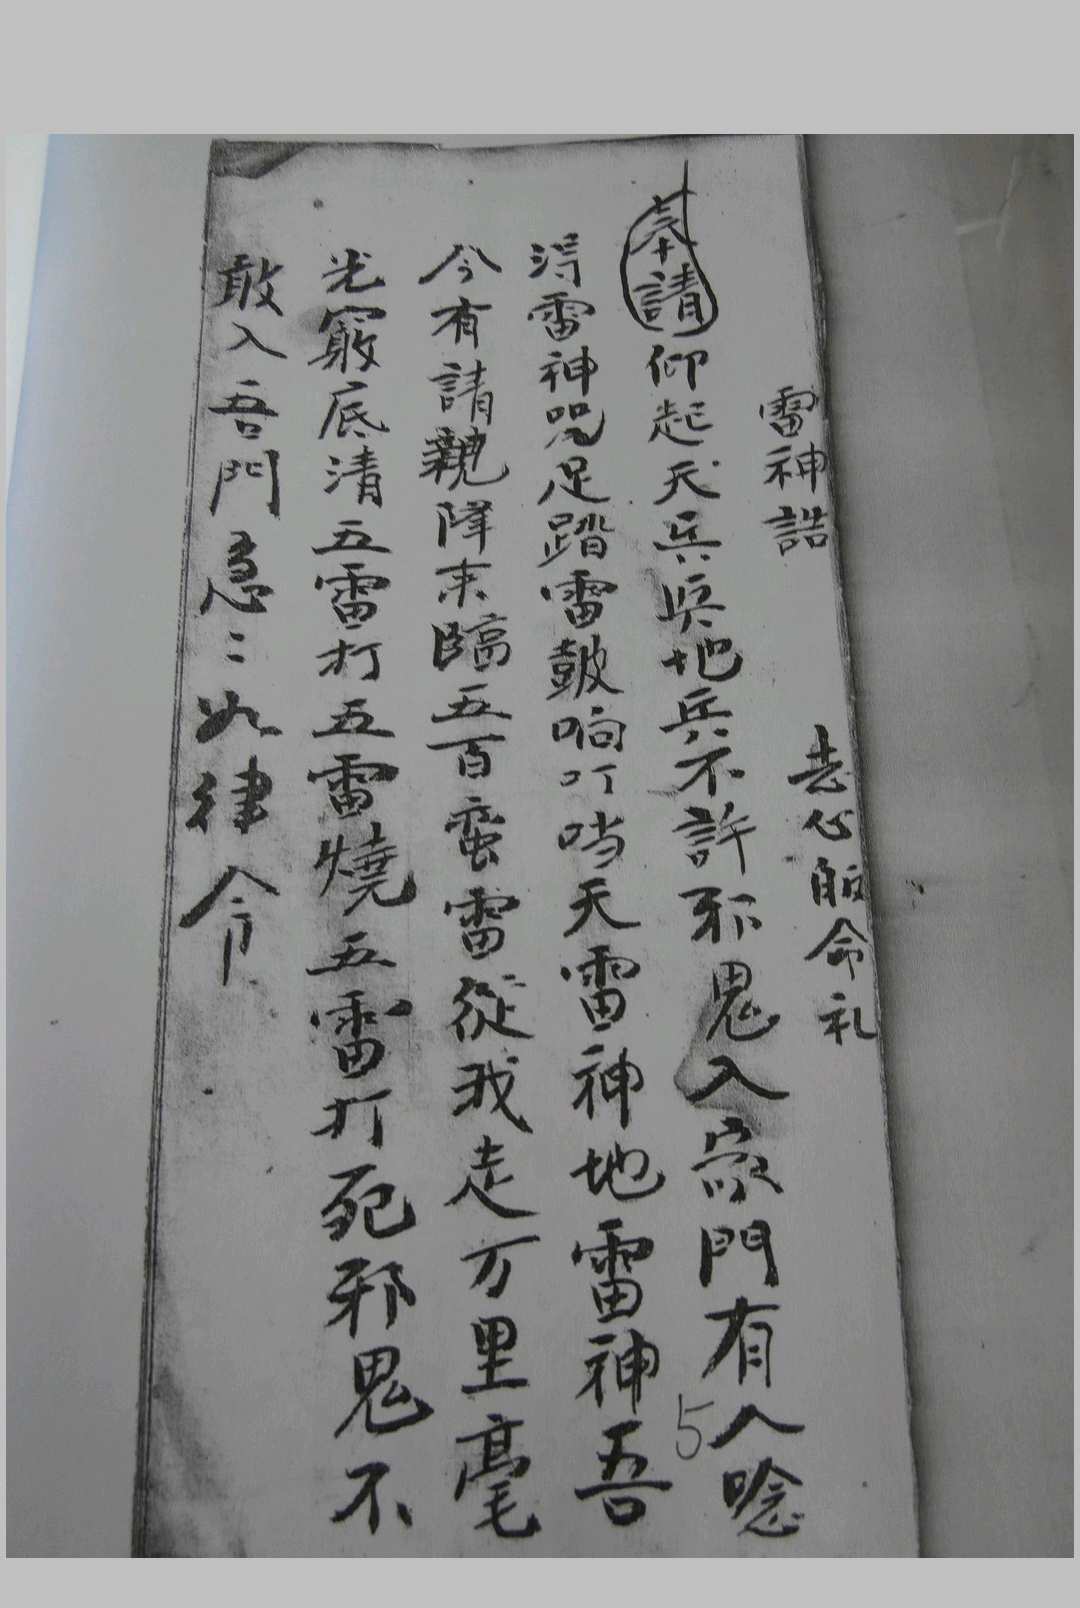 雷神誥 志心皈命礼
奉請仰起天兵與地兵不許邪鬼入家門有人唸
淂雷神咒足踏雷鼓响叮噹天雷神地雷神吾
今有請親降来臨五百蛮雷從我走万里毫
光竅底清五雷打五雷燒五雷打死邪鬼不
敢入吾門急〻如律令
5